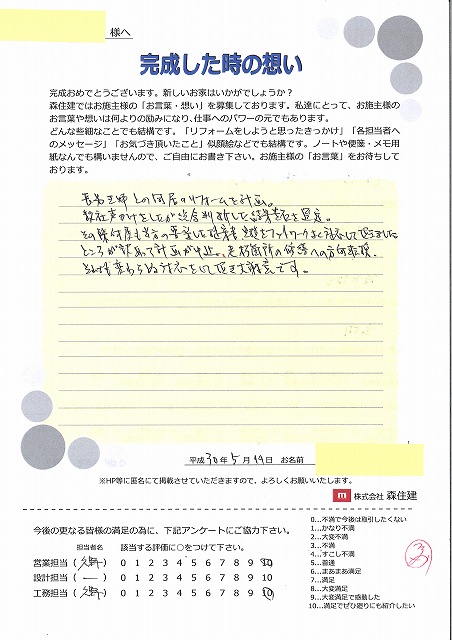 様へ
完成した時の想い
完成おめでとうございます。新しいお家はいかがでしょうか？
森住建ではお施主様の「お言葉・想い」を募集しております。私達にとって、お施主様の
お言葉や想いは何よりの励みになり、仕事へのパワーの元でもあります。
どんな些細なことでも結構です。「リフォームをしようと思ったきっかけ」「各担当者へ
のメッセージ」「お気づき頂いたこと」似顔絵などでも結構です。ノートや便箋・メモ用
紙なんでも構いませんので、ご自由にお書き下さい。お施主様の「お言葉」をお待ちして
おります。
同居のリフォームを計画。
数社声かけをしたが
ところが 計画が中止。
対応をして頂き大満足です。
平成30年5月19日 お名前
※HP等に匿名にて掲載させていただきますので、よろしくお願いいたします。
m 株式会社 森住建
今後の更なる皆様の満足の為に、下記アンケートにご協力下さい。
担当者名 該当する評価に○をつけて下さい。
営業担当 ( ) 0 1 2 3 4 5 6 7 8 9 10
設計担当 ( ー ) 0 1 2 3 4 5 6 7 8 9 10
工務担当 ( ) 0 1 2 3 4 5 6 7 8 9 10
0…不満で今後は取引したくない
1…かなり不満
2…大変不満
3…不満
4…すこし不満
5…普通
6…まあまあ満足
7…満足
8…大変満足
9…大変満足で感動した
10…満足でぜひ廻りにも紹介したい